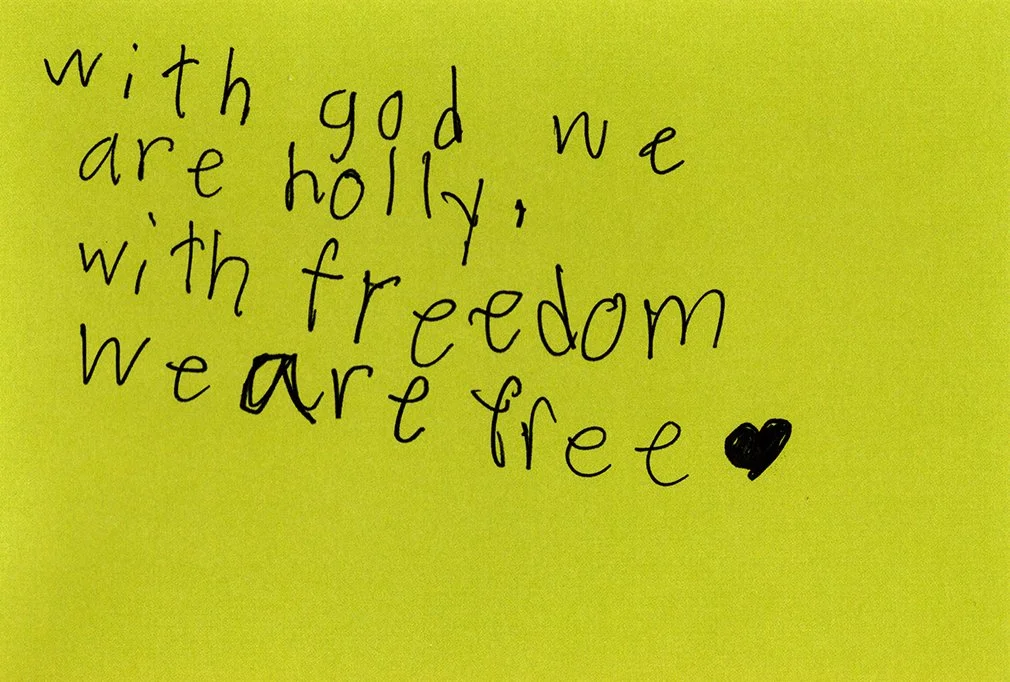 with god we
are holly,
with freedom
we are free ♥